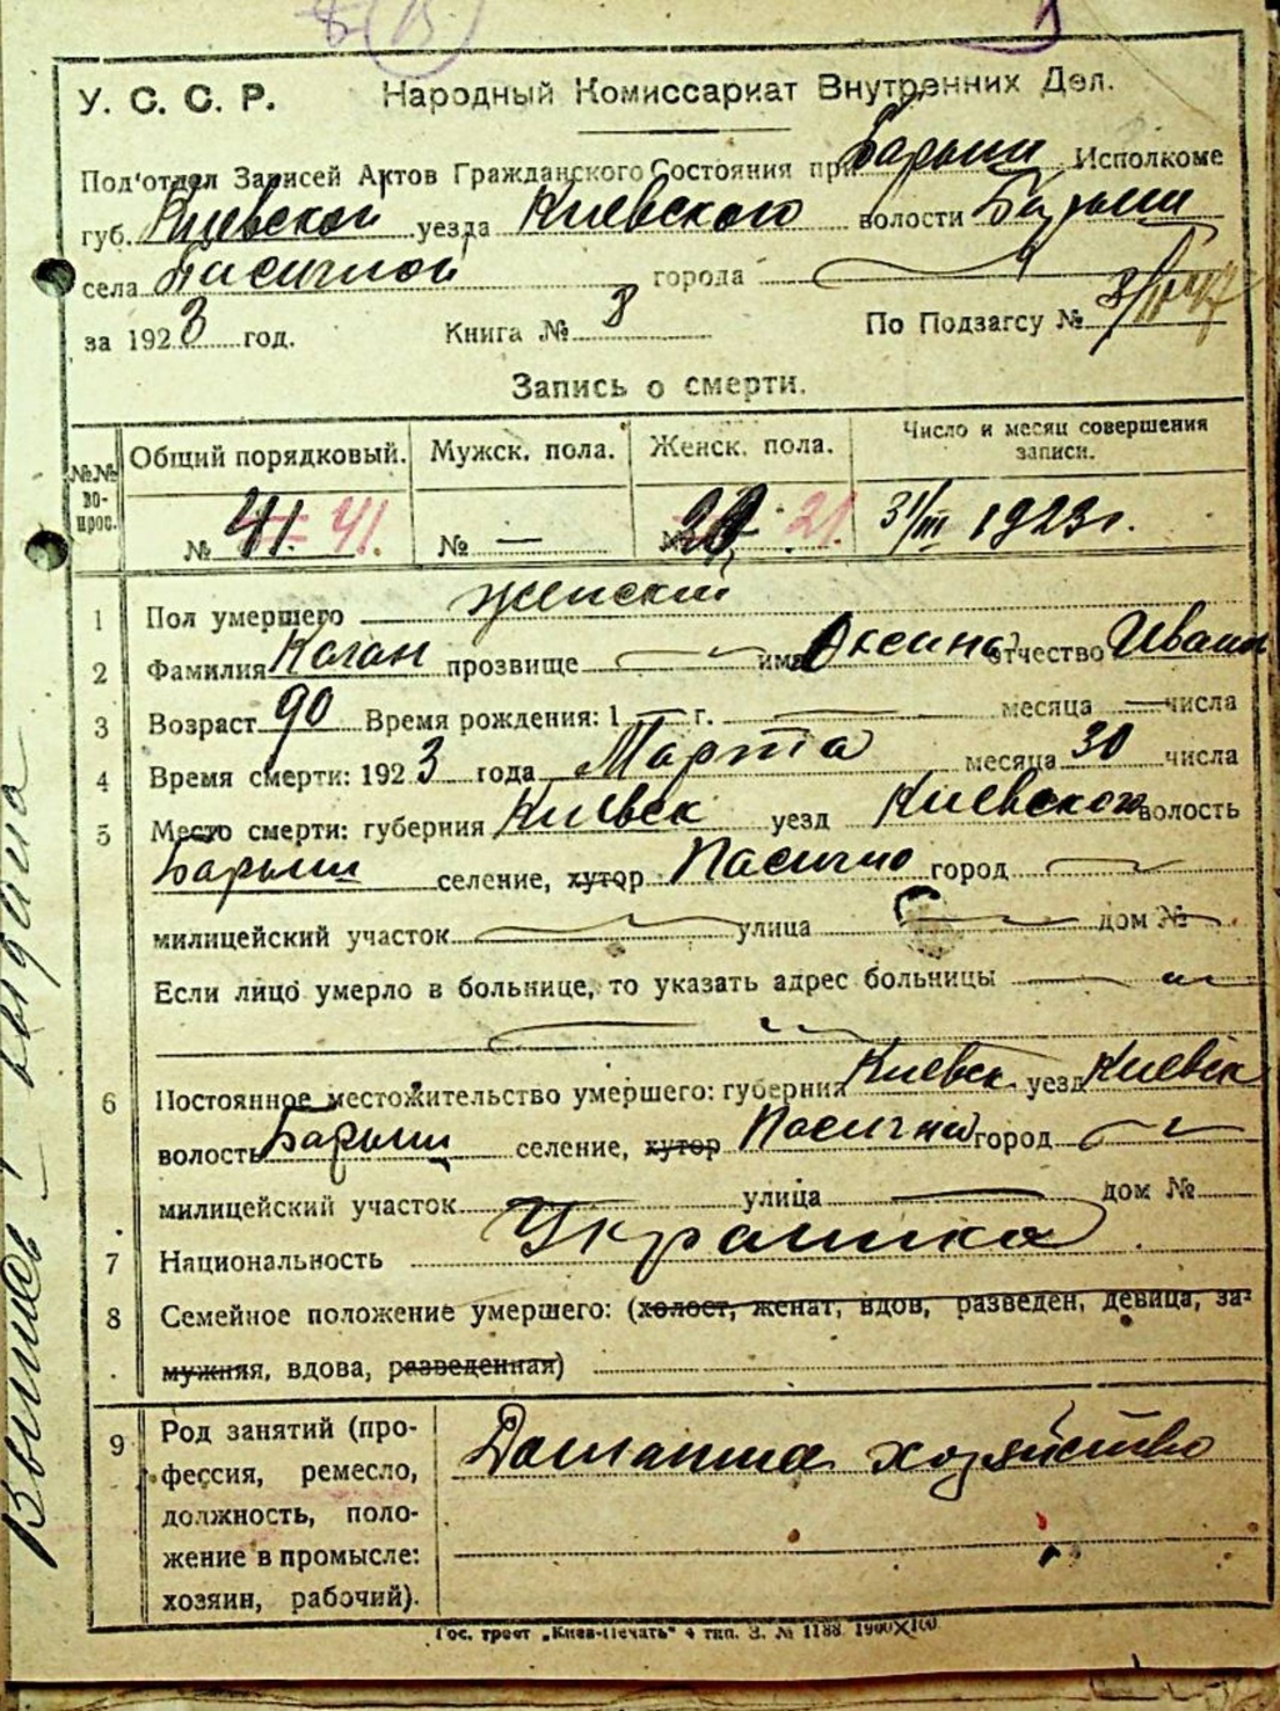 8 (13)
У. С. С. Р. Народный Комиссариат Внутренних Дел.
Под'отдел Записей Актов Гражданского Состояния при Барыш Исполкоме
губ. Киевской уезда Киевского волости Барыш
села Пасичной города
за 1923 год. Книга № 8 По Подзагсу №
Запись о смерти.
№№ вопрос. Общий порядковый. Мужск. пола. Женск. пола. Число и месяц совершения записи.
№ 41. 41. № — № 21. 31/III 1923 г.
1 Пол умершего женский
2 Фамилия Каган прозвище — имя Оксина отчество Иван
3 Возраст 90 Время рождения: 1 — г. — месяца — числа
4 Время смерти: 1923 года Марта месяца 30 числа
5 Место смерти: губерния Киевск уезд Киевского волость
Барыш селение, хутор Пасично город —
милицейский участок — улица — дом № —
Если лицо умерло в больнице, то указать адрес больницы —
6 Постоянное местожительство умершего: губерния Киевск уезд Киевск
волость Барыш селение, хутор Пасична город —
милицейский участок — улица — дом №
7 Национальность Украинка
8 Семейное положение умершего: (холост, женат, вдов, разведен, девица, за-
мужняя, вдова, разведенная)
9 Род занятий (про- Домашнее хозяйство
фессия, ремесло,
должность, поло-
жение в промысле:
хозяин, рабочий).
Гос. трест „Киев-Печать" 4 тип. З. № 1188 1900X100